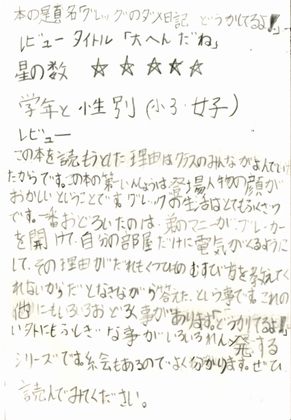 本の題名「グレッグのダメ日記 どうかしてるよ!」
レビュータイトル「大へんだね」
星の数 ☆☆☆☆☆
学年と性別(小3・女子)
レビュー
この本を読もうとした理由はクラスのみんながよんでいて
たからです。この本の第一いんしょうは登場人物の顔が
おかしいということです。グレッグの生活はとてもらくそう
です。一番おどろいたのは、弟のマニーがブレーカー
を開けて、自分の部屋だけに電気がくるように
して、その理由がだれもくつひものむすび方を教えてく
れないからだとなきながら答えた、という事です。これの
他にもいろいろおどろく事があります。「どうかしてるよ!」
いがいにもふしぎな事がいろいろれん発する
シリーズです。絵もあるのでよく分かります。ぜひ
読んでみてください。